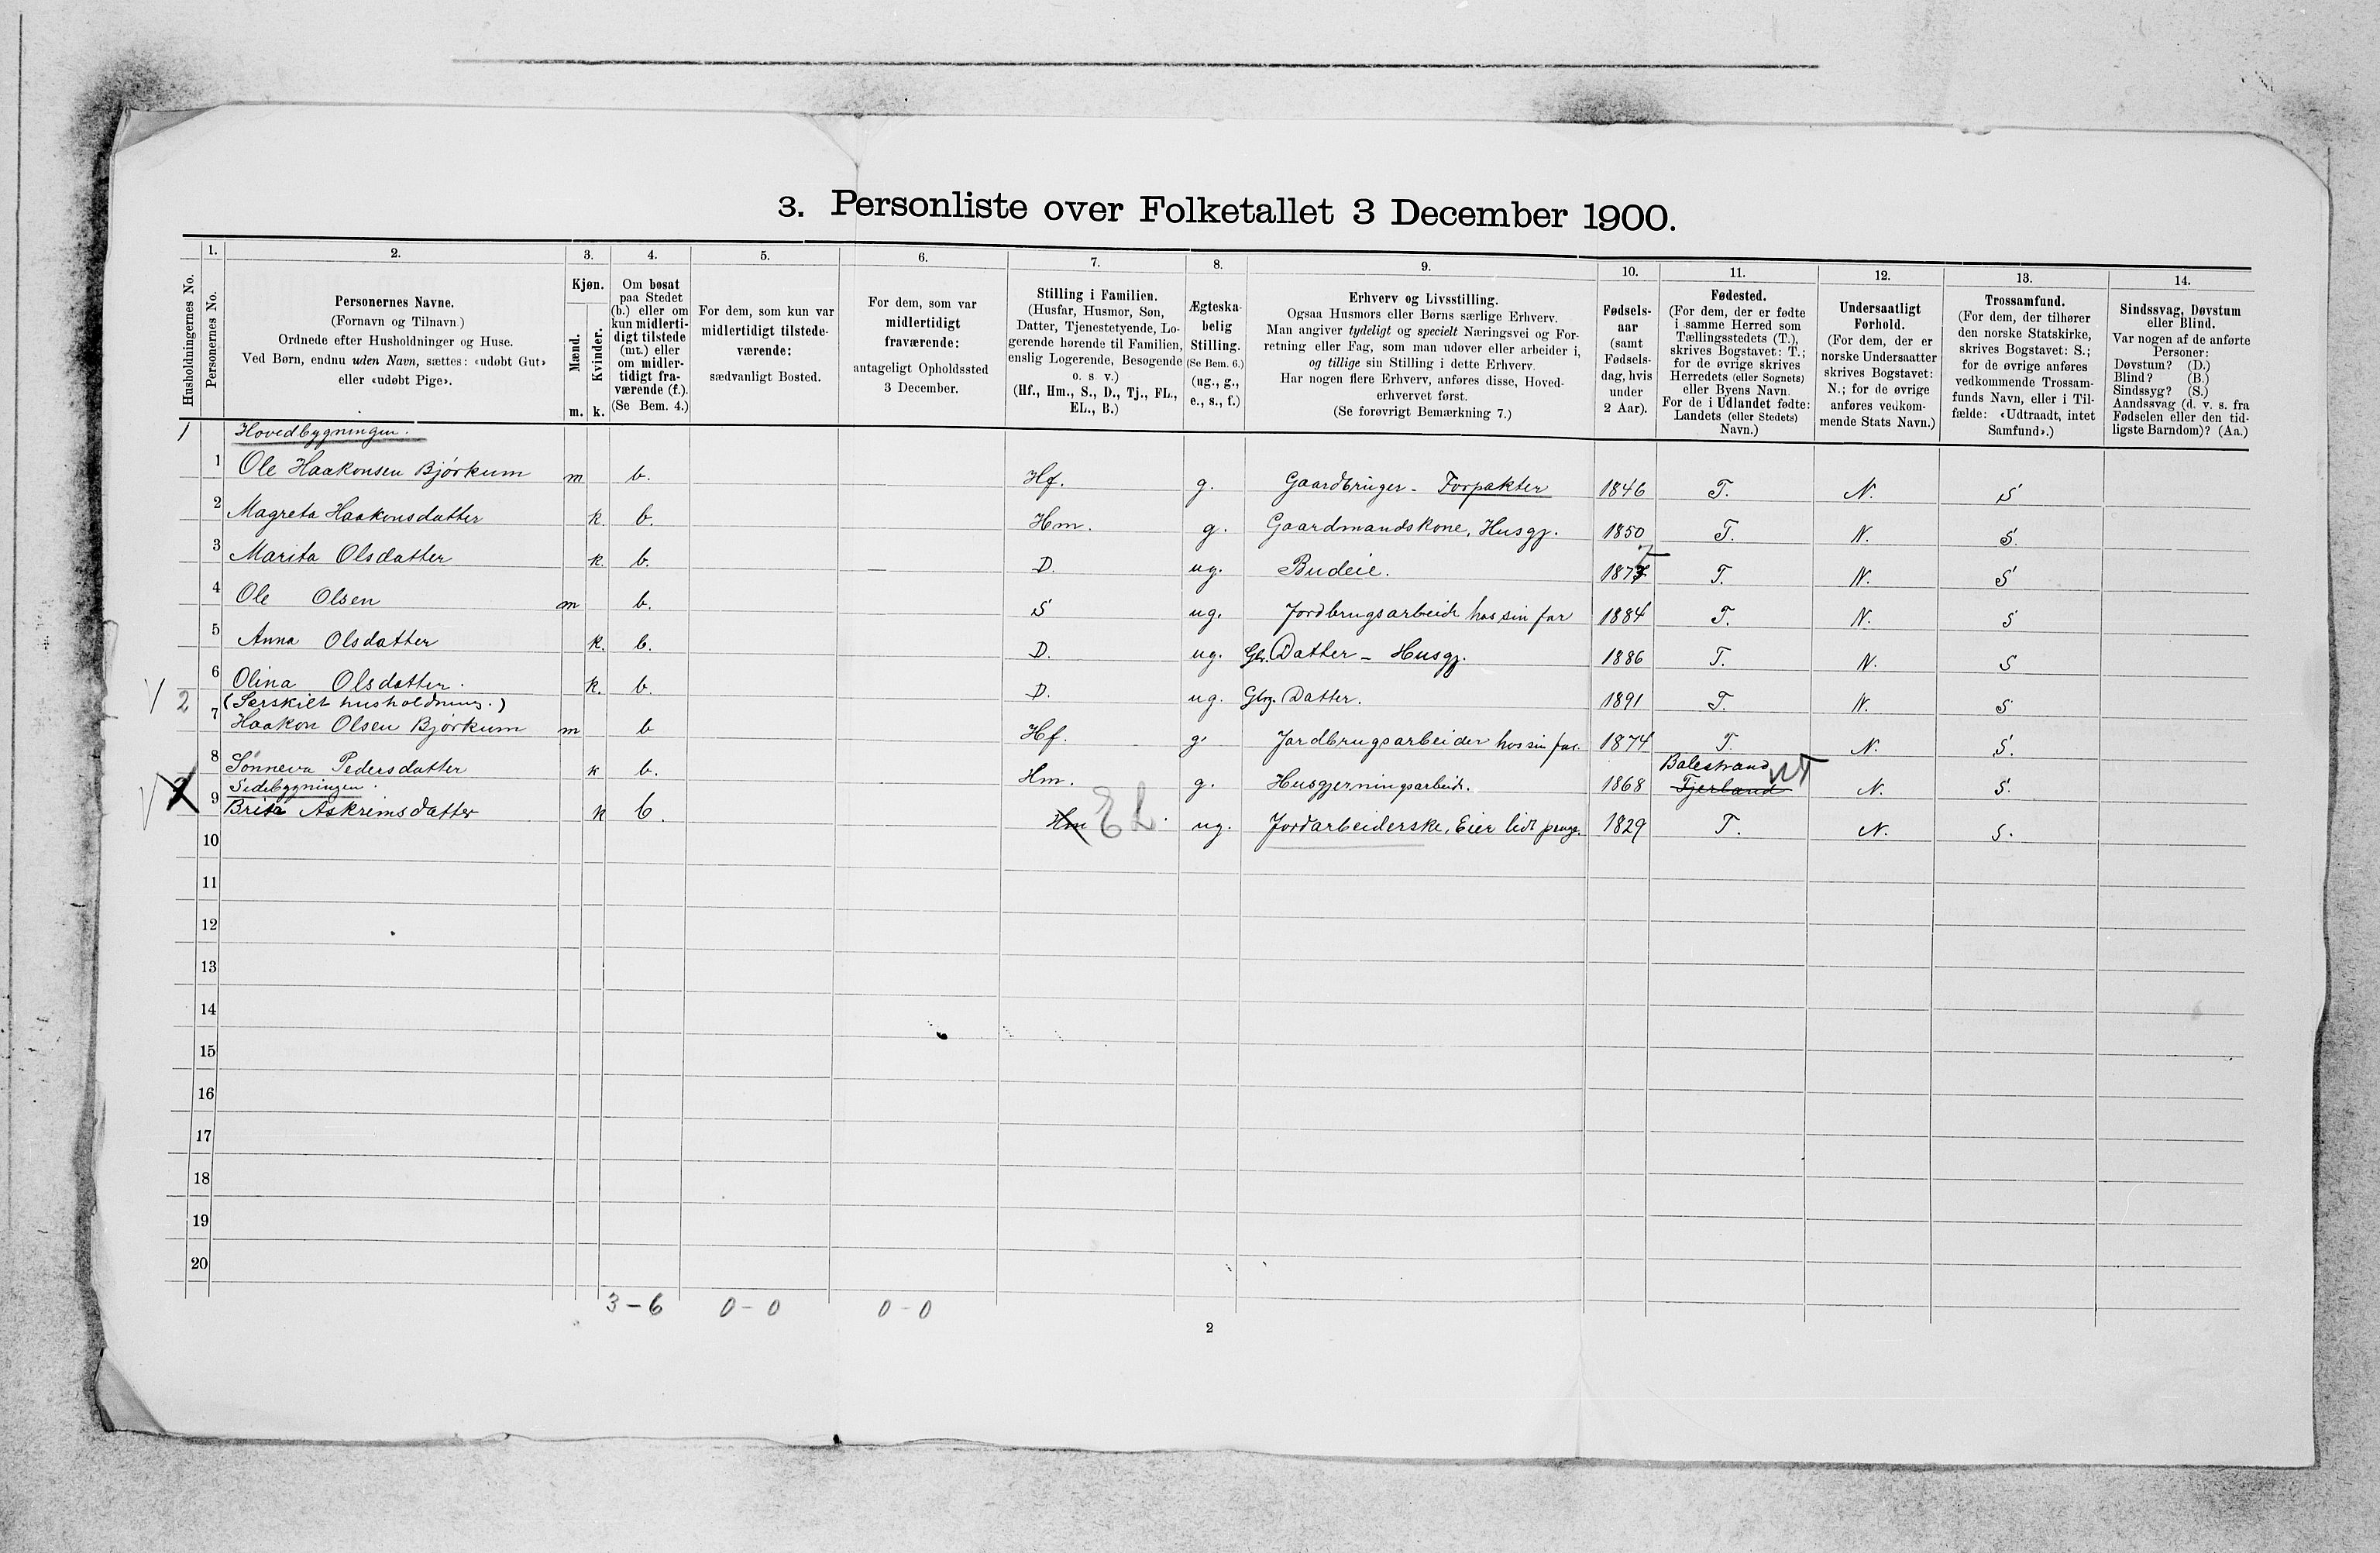 3. Personliste over Folketallet 3 December 1900.
1. 2. 3. 4. 5. 6. 7. 8. 9. 10. 11. 12. 13. 14.
Husholdningernes No.
Personernes No.
Personernes Navne.
(Fornavn og Tilnavn)
Ordnede efter Husholdninger og Huse.
Ved Børn, endnu uden Navn, sættes: «udøbt Gut»
eller «udøbt Pige».
Kjøn.
Mænd.
Kvinder.
m. k.
Om bosat
paa Stedet
(b.) eller om
kun midlerti-
digt tilstede
(mt.) eller
om midler-
tidigt fra-
værende (f.).
(Se Bem. 4.)
For dem, som kun var
midlertidigt tilstede-
værende:
sædvanligt Bosted.
For dem, som var
midlertidigt
fraværende:
antageligt Opholdssted
3 December.
Stilling i Familien.
(Husfar, Husmor, Søn,
Datter, Tjenestetyende, Lo-
gerende hørende til Familien,
enslig Logerende, Besøgende
o. s v.)
(Hf., Hm., S., D., Tj., FL.,
EL., B.)
Ægteska-
belig
Stilling.
(Se Bem. 6.)
(ug., g.,
e., s., f.)
Erhverv og Livsstilling.
Ogsaa Husmors eller Børns særlige Erhverv.
Man angiver tydeligt og specielt Næringsvei og For-
retning eller Fag, som man udøver eller arbeider i,
og tillige sin Stilling i dette Erhverv.
Har nogen flere Erhverv, anføres disse, Hoved-
erhvervet først.
(Se forøvrigt Bemærkning 7.)
Fødsels-
aar
(samt
Fødsels-
dag, hvis
under
2 Aar).
Fødested.
(For dem, der er fødte
i samme Herred som
Tællingsstedets (T.),
skrives Bogstavet: T.;
for de øvrige skrives
Herredets (eller Sognets)
eller Byens Navn.
For de i Udlandet fødte:
Landets (eller Stedets)
Navn.)
Undersaatligt
Forhold.
(For dem, der er
norske Undersaatter
skrives Bogstavet:
N.; for de øvrige
anføres vedkom-
mende Stats Navn.)
Trossamfund.
(For dem, der tilhører
den norske Statskirke,
skrives Bogstavet: S.;
for de øvrige anføres
vedkommende Trossam-
funds Navn, eller i Til-
fælde: «Udtraadt, intet
Samfund».)
Sindssvag, Døvstum
eller Blind.
Var nogen af de anførte
Personer:
Døvstum? (D.)
Blind? (B.)
Sindssyg? (S.)
Aandssvag (d. v. s. fra
Fødselen eller den tid-
ligste Barndom)? (Aa.)
1 Hovedbygningen.
1 Ole Haakonsen Bjørkum m b. Hf. g. Gaardbruger - Forpakter 1846 T. N. S
2 Magreta Haakonsdatter k. b. Hm. g. Gaardmandskone, Husgj. 1850 T. N. S.
3 Marita Olsdatter k. b. D. ug. Budeie. 187 T. N. S
4 Ole Olsen m b. S ug. Jordbrugsarbeide hos sin far 1884 T. N. S
5 Anna Olsdatter k. b. D. ug. Datter - Husgj. 1886 T. N. S
6 Olina Olsdatter. k. b. D. ug. Datter. 1891 T. N. S
2 (Serskilt husholdning.)
7 Haakon Olsen Bjørkum m b Hf. g. Jordbrugsarbeider hos sin far. 1874 T. N. S.
8 Sønneva Pedersdatter k b. Hm. g. Husgjerningsarbeide. 1868 Balestrand Fjerland N. S.
Sidebygningen.
9 Brita Askeimsdatter k b. Hm EL. ug. Jordarbeiderske, Eier lidt penge. 1829 T. N. S.
10
11
12
13
14
15
16
17
18
19
20
3-6 0-0 0-0
2